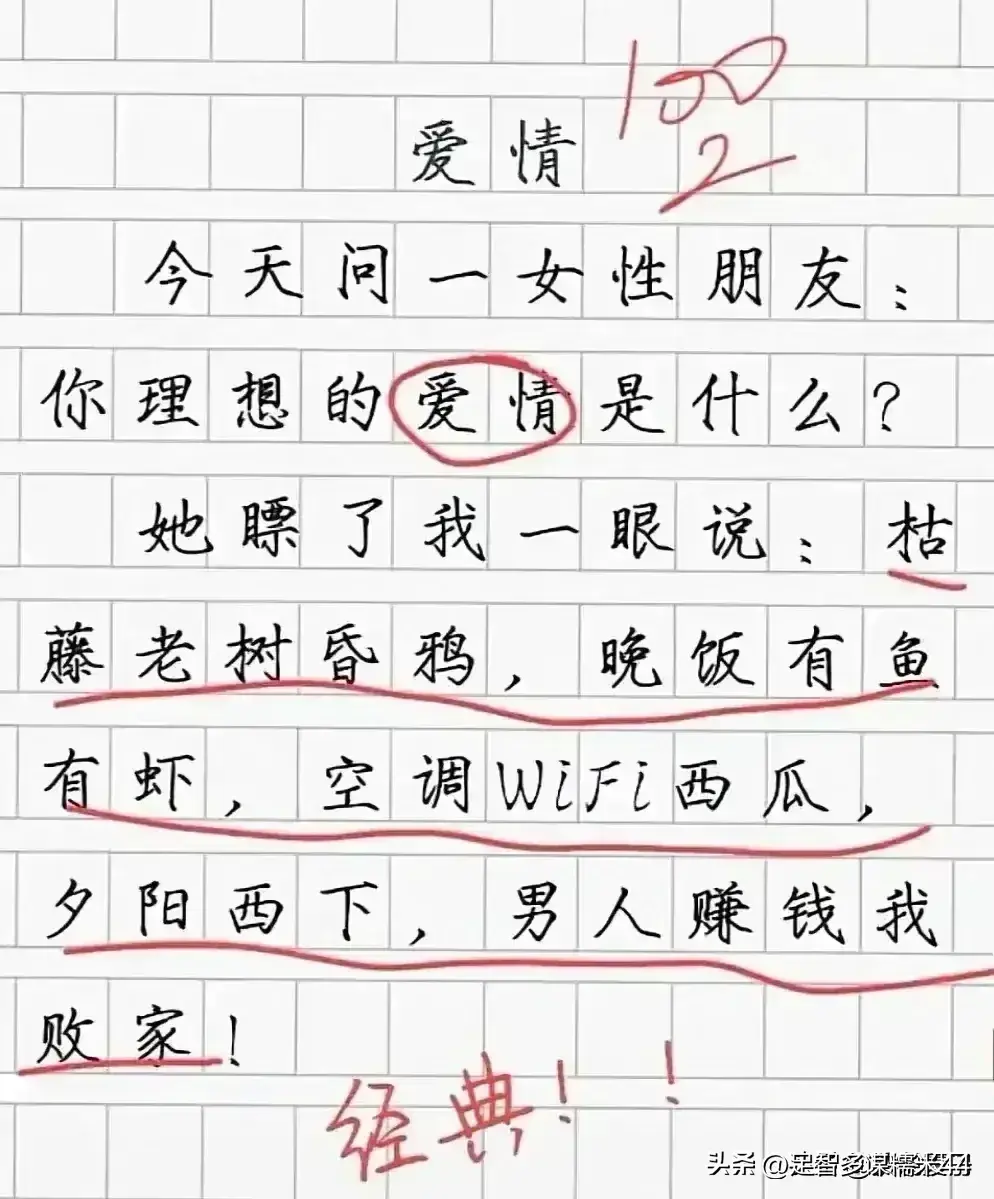 爱情
100
2
今天问一女性朋友：
你理想的爱情是什么？
她瞟了我一眼说：枯
藤老树昏鸦，晚饭有鱼
有虾，空调WiFi西瓜，
夕阳西下，男人赚钱我
败家！
经典！！
头条